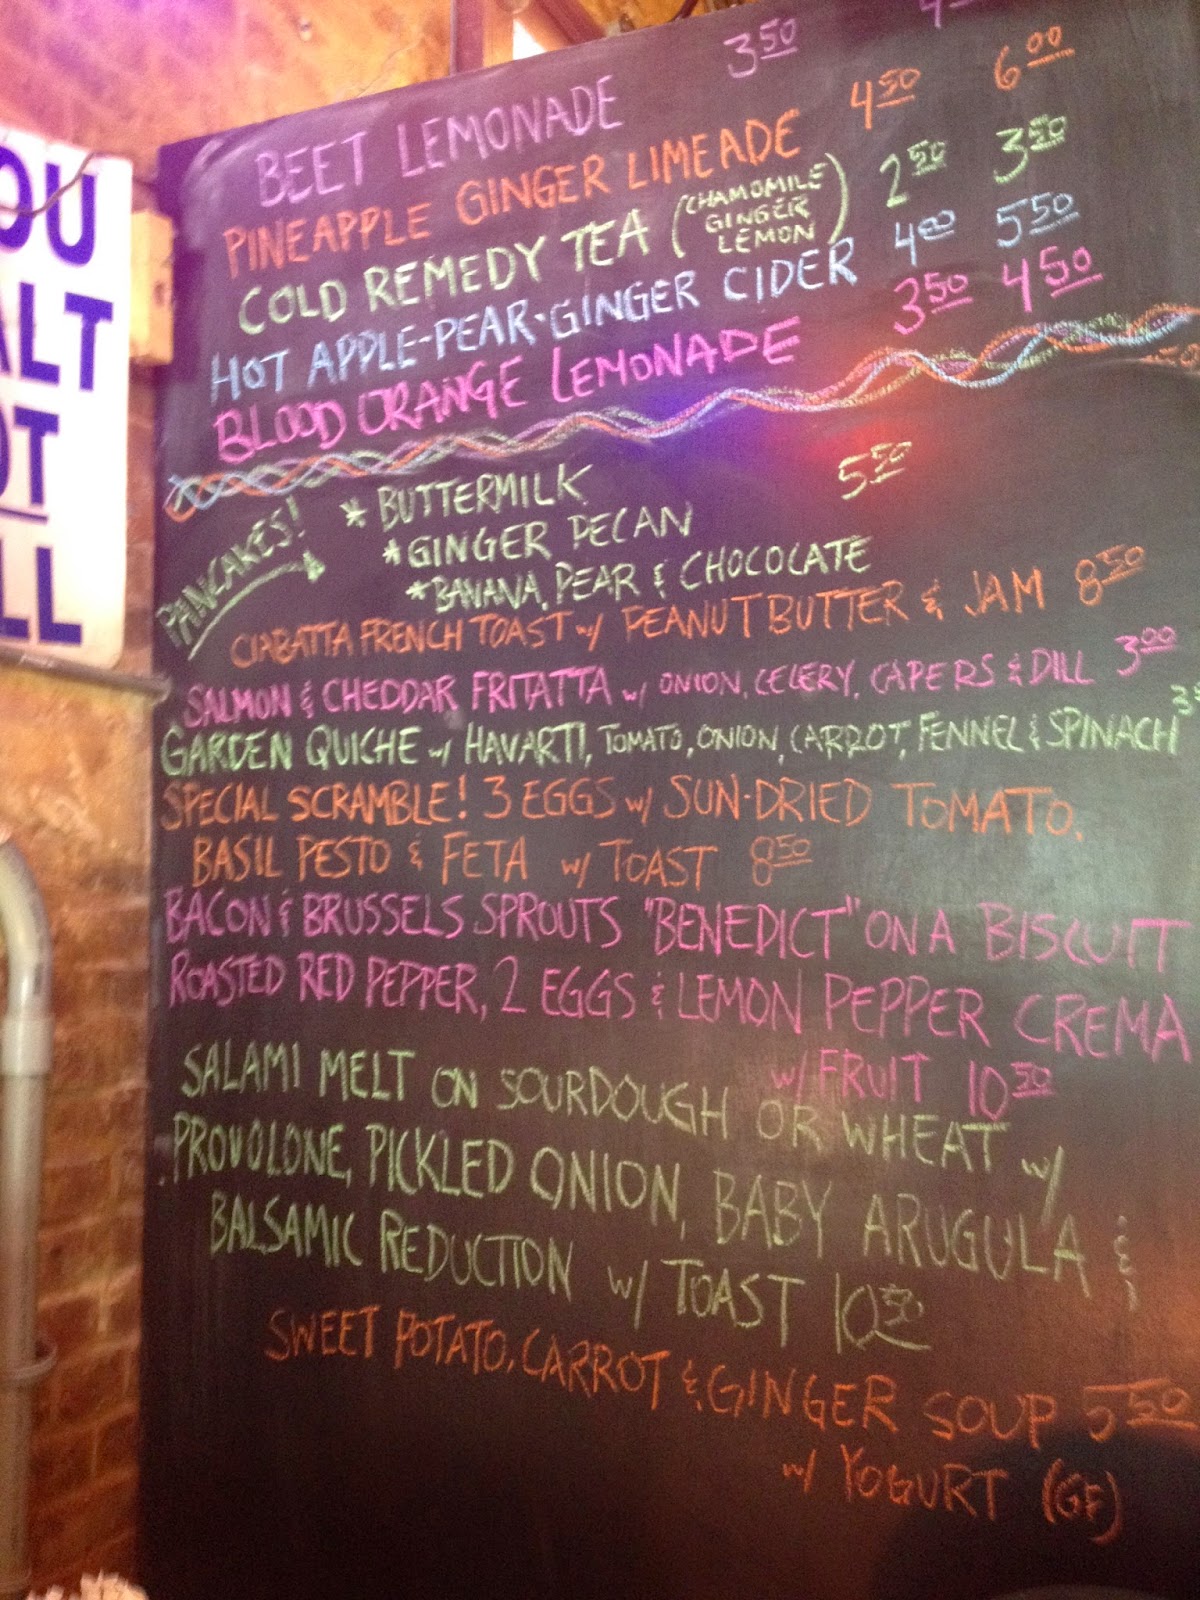 BEET LEMONADE 3 50
PINEAPPLE GINGER LIMEADE 4 50 6 00
COLD REMEDY TEA (CHAMOMILE GINGER LEMON) 2 50 3 50
HOT APPLE-PEAR-GINGER CIDER 4 00 5 50
BLOOD ORANGE LEMONADE 3 50 4 50
PANCAKES! * BUTTERMILK 5 50
* GINGER PECAN
* BANANA, PEAR & CHOCOLATE
CIABATTA FRENCH TOAST w/ PEANUT BUTTER & JAM 8 50
SALMON & CHEDDAR FRITATTA w/ ONION, CELERY, CAPERS & DILL 3 00
GARDEN QUICHE w/ HAVARTI, TOMATO, ONION, CARROT, FENNEL & SPINACH
SPECIAL SCRAMBLE! 3 EGGS w/ SUN-DRIED TOMATO,
BASIL PESTO & FETA w/ TOAST 8 50
BACON & BRUSSELS SPROUTS "BENEDICT" ON A BISCUIT
ROASTED RED PEPPER, 2 EGGS & LEMON PEPPER CREMA
w/ FRUIT 10 50
SALAMI MELT ON SOURDOUGH OR WHEAT w/
PROVOLONE, PICKLED ONION, BABY ARUGULA &
BALSAMIC REDUCTION w/ TOAST 10 50
SWEET POTATO, CARROT & GINGER SOUP 5 50
w/ YOGURT (GF)
OU
ALT
OT
LL